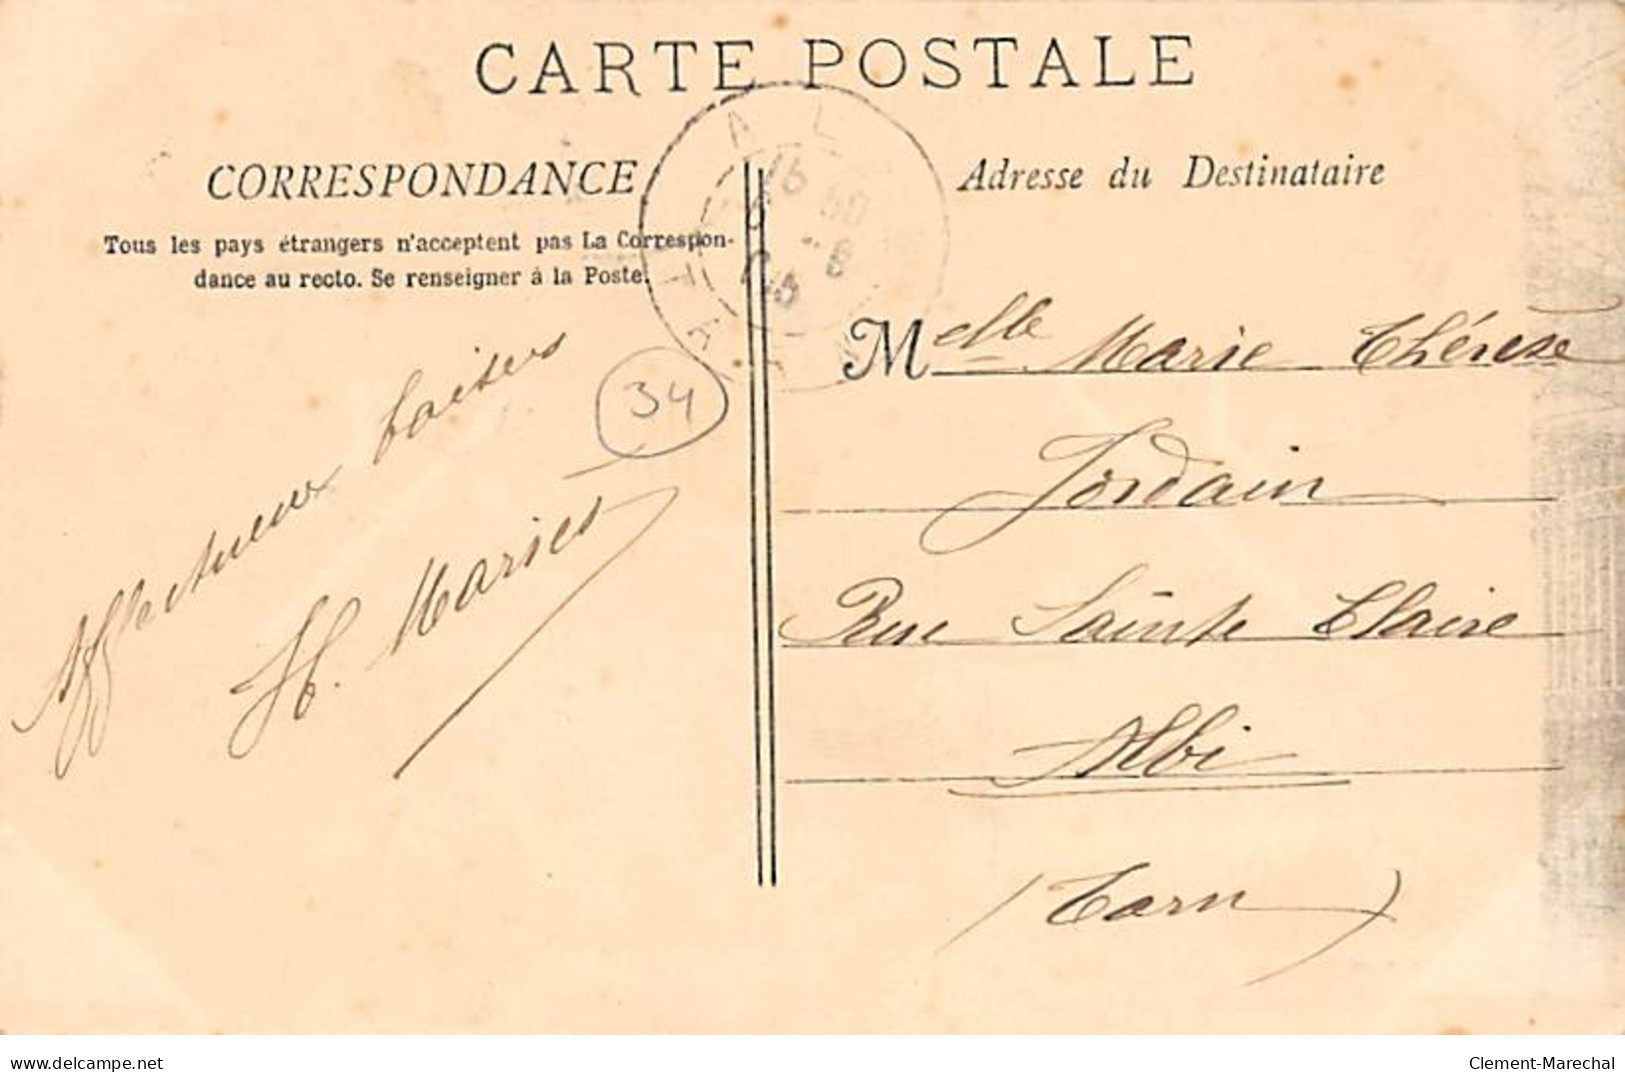 CARTE POSTALE
CORRESPONDANCE
Tous les pays étrangers n'acceptent pas La Correspon-
dance au recto. Se renseigner à la Poste.
Affectueux baisers
H. Maries
34
Adresse du Destinataire
Melle Marie Thérèse
Jordain
Rue Sainte Claire
Albi
(Tarn)
www.delcampe.net
Clement-Marechal